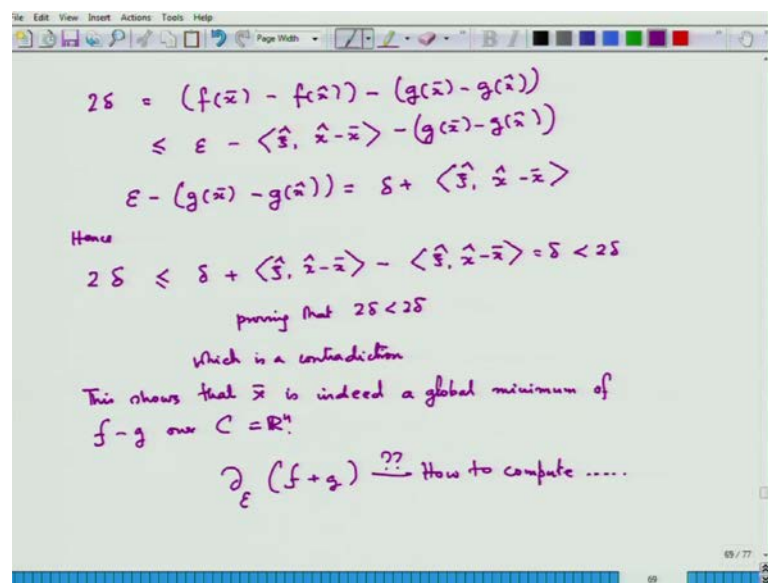 File Edit View Insert Actions Tools Help
Page Width
2δ = (f(x̄) - f(x̂)) - (g(x̄) - g(x̂))
≤ ε - ⟨ξ̂, x̂-x̄⟩ - (g(x̄) - g(x̂))
ε - (g(x̄) - g(x̂)) = δ + ⟨ξ̂, x̂-x̄⟩
Hence
2δ ≤ δ + ⟨ξ̂, x̂-x̄⟩ - ⟨ξ̂, x̂-x̄⟩ = δ < 2δ
proving that 2δ < 2δ
which is a contradiction
This shows that x̄ is indeed a global minimum of
f-g over C = ℝⁿ.
∂_ε (f+g) ?? How to compute .....
69 / 77
69